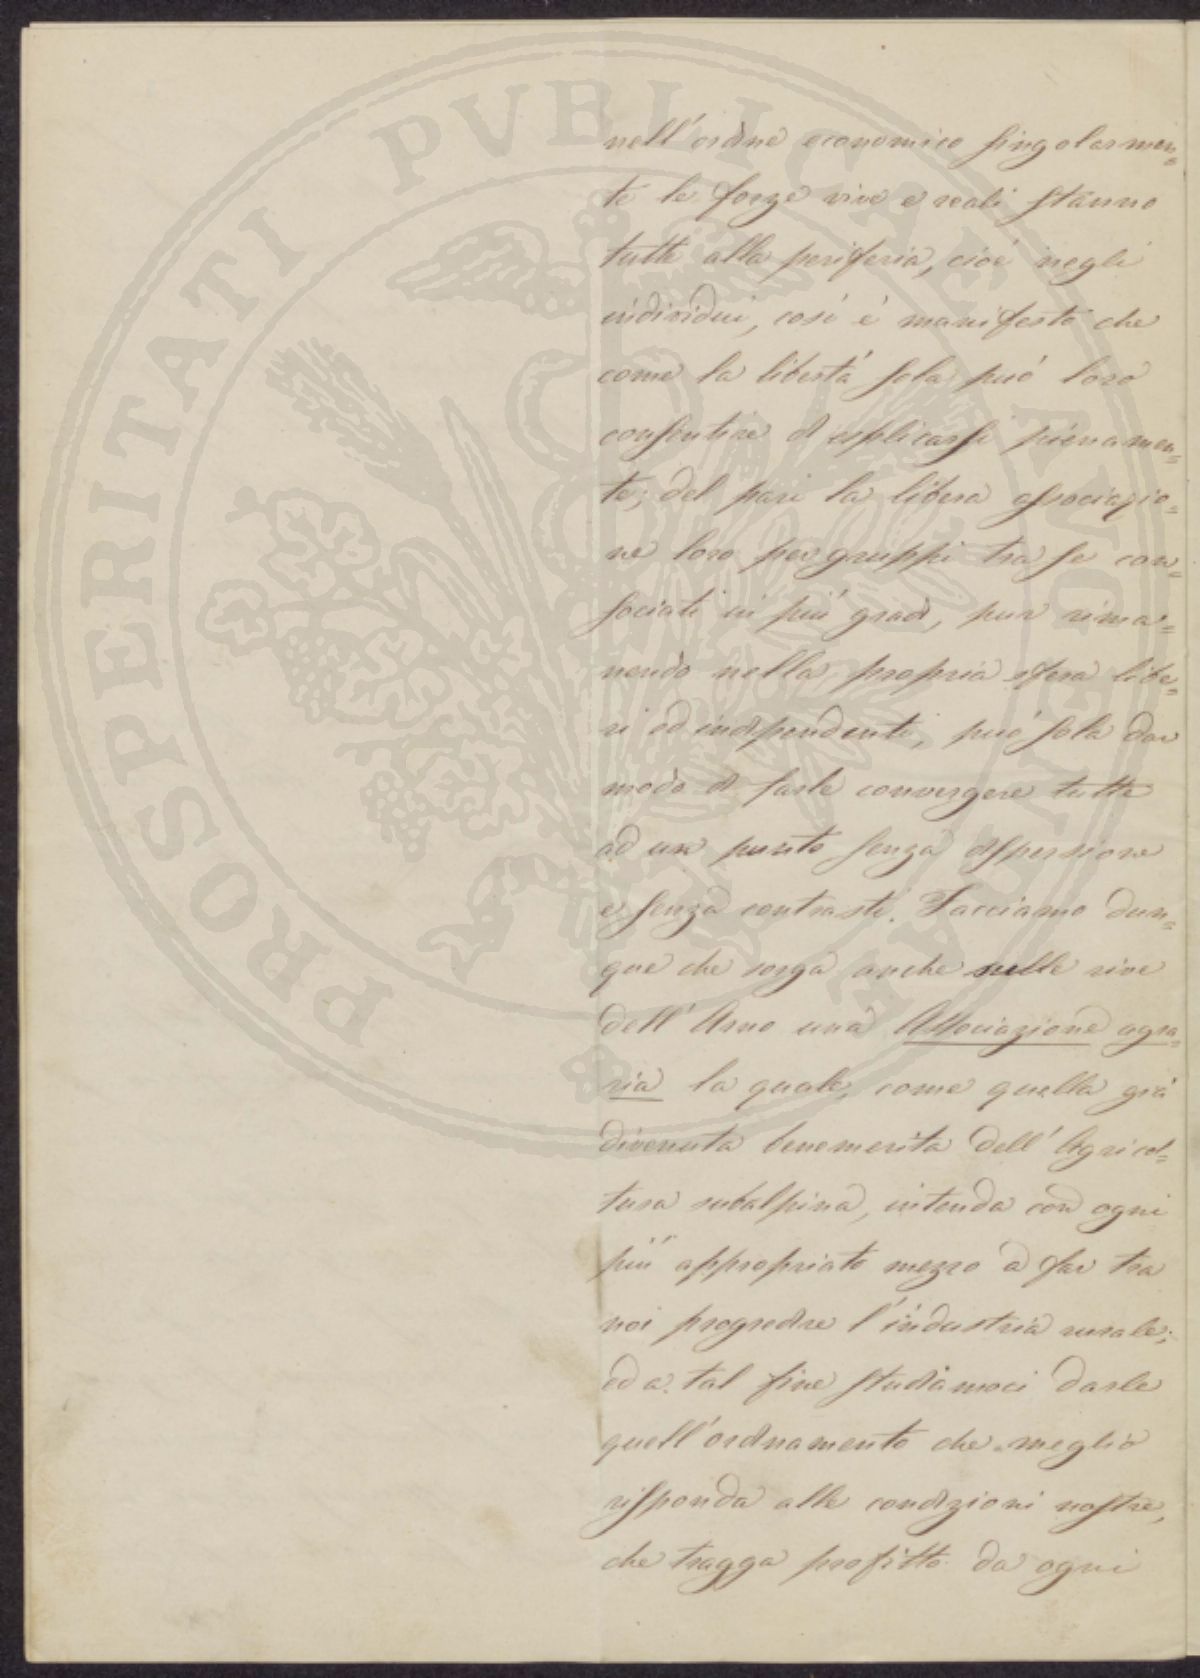 PROSPERITATI PVBLICAE AVGENDAE
nell'ordine economico singolarmen=
te le forze vive e reali stanno
tutte alla periferia, cioè negli
individui, così è manifesto che
come la libertà sola può loro
consentire di esplicarsi pienamen=
te; del pari la libera associazio=
ne loro per gruppi tra se con=
sociati in più gradi, pur rima=
nendo nella propria sfera libe=
ri ed indipendenti, può sola dar
modo di farle convergere tutte
ad un punto senza dispersione
e senza contrasti. Facciamo dun=
que che sorga anche sulle rive
dell'Arno una Associazione agra=
ria la quale, come quella già
divenuta benemerita dell'Agricol=
tura subalpina, intenda con ogni
più appropriato mezzo a far tra
noi progredire l'industria rurale;
ed a tal fine studiamoci darle
quell'ordinamento che meglio
risponda alle condizioni nostre,
che tragga profitto da ogni